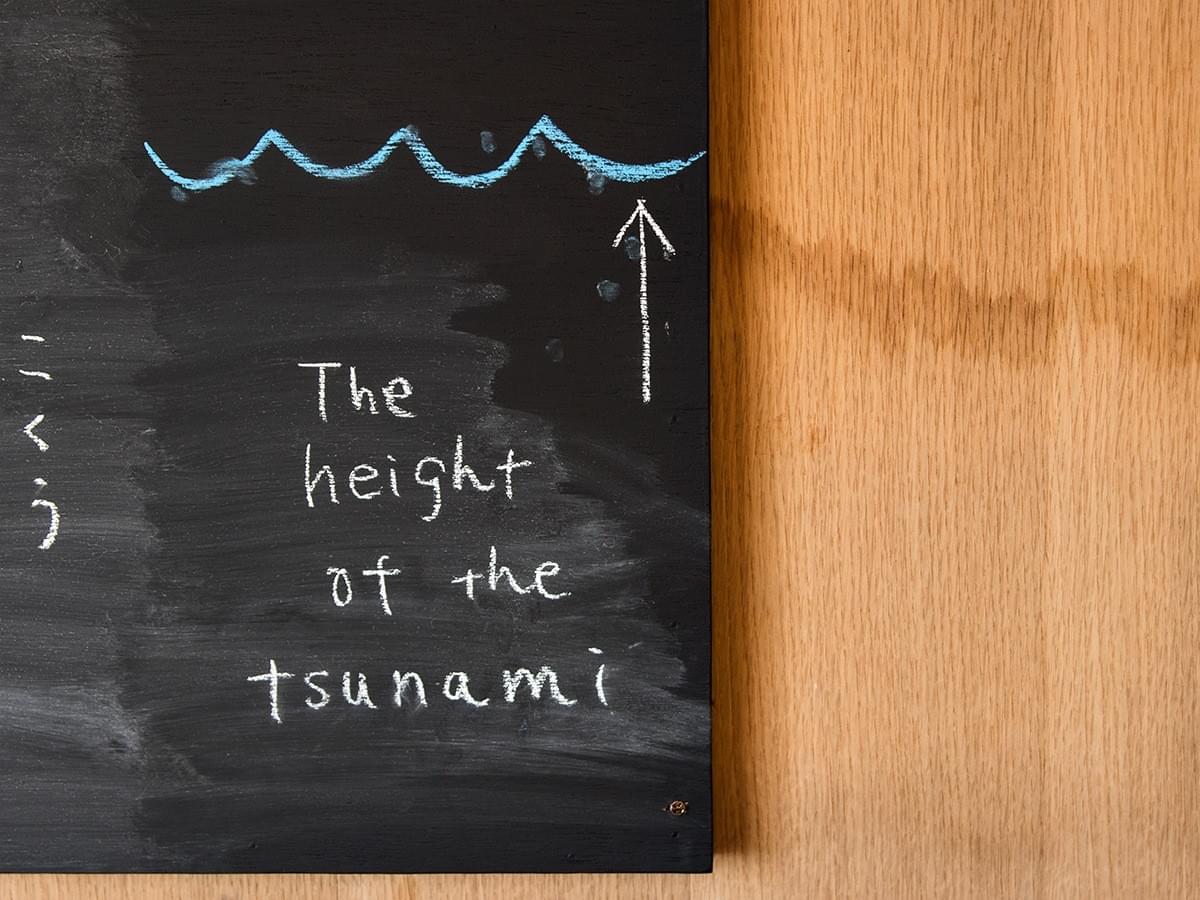 こくう
The
height
of the
tsunami